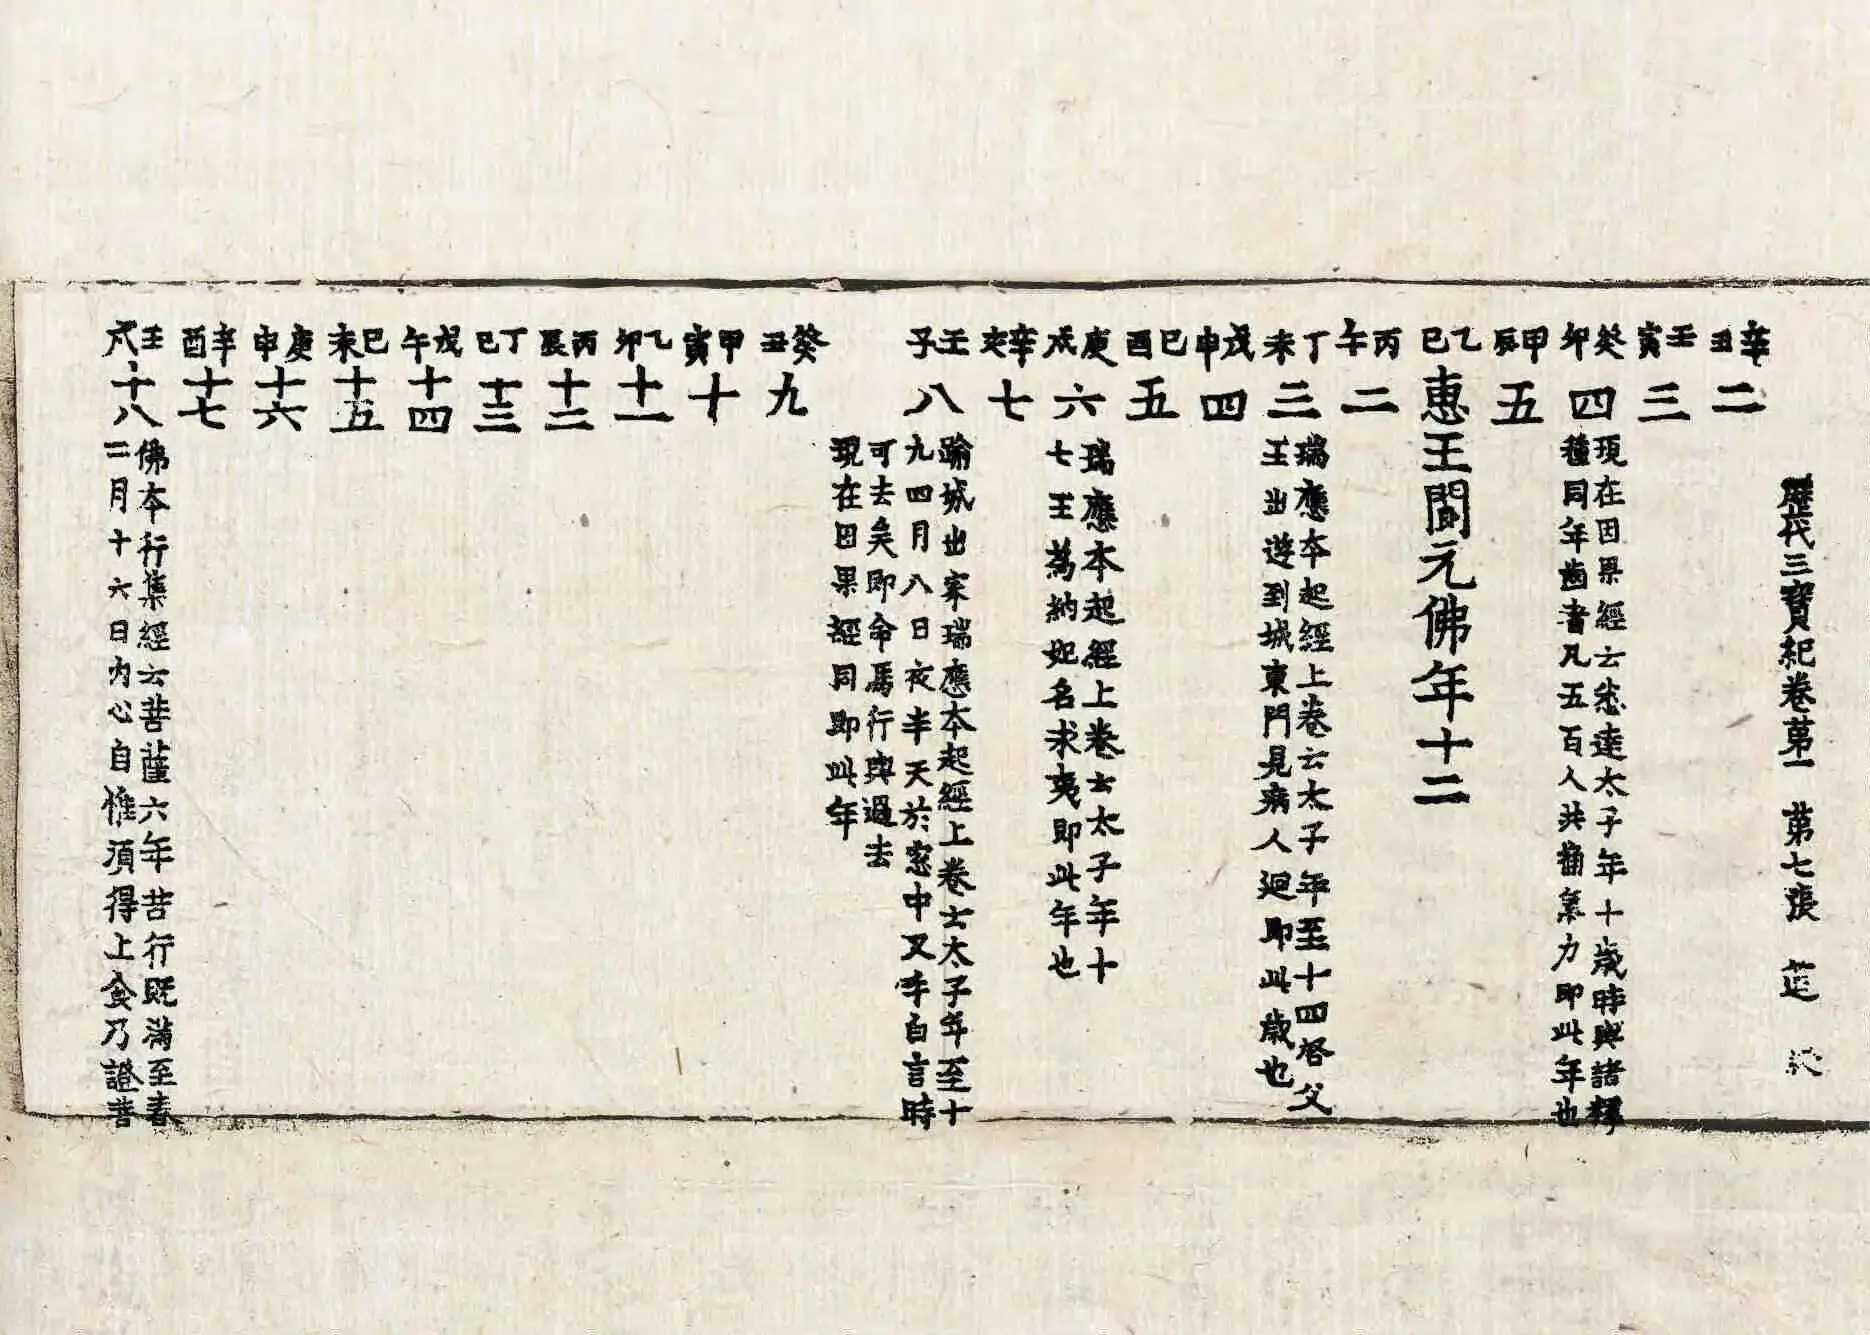 歷代三寶紀卷苐一 第七張 莚
辛丑 二
壬寅 三
癸卯 四
現在因果經云悉達太子年十歲時與諸釋
種同年齒者凡五百人共捔氣力即此年也
甲辰 五
乙巳 惠王閬元佛年十二
丙午 二
丁未 三
瑞應本起經上卷云太子年至十四啓父
王出遊到城東門見病人迴即此歲也
戊申 四
巳酉 五
庚戌 六
瑞應本起經上卷云太子年十
七王為納妃名求夷即此年也
辛亥 七
壬子 八
踰城出家瑞應本起經上卷云太子年至十
九四月八日夜半天於窓中叉手白言時
可去矣即命馬行與過去
現在因果經同即此年
癸丑 九
甲寅 十
乙卯 十一
丙辰 十二
丁巳 十三
戊午 十四
巳未 十五
庚申 十六
辛酉 十七
壬戌 十八
佛本行集經云菩薩六年苦行既滿至春
二月十六日內心自惟須得上食乃證菩